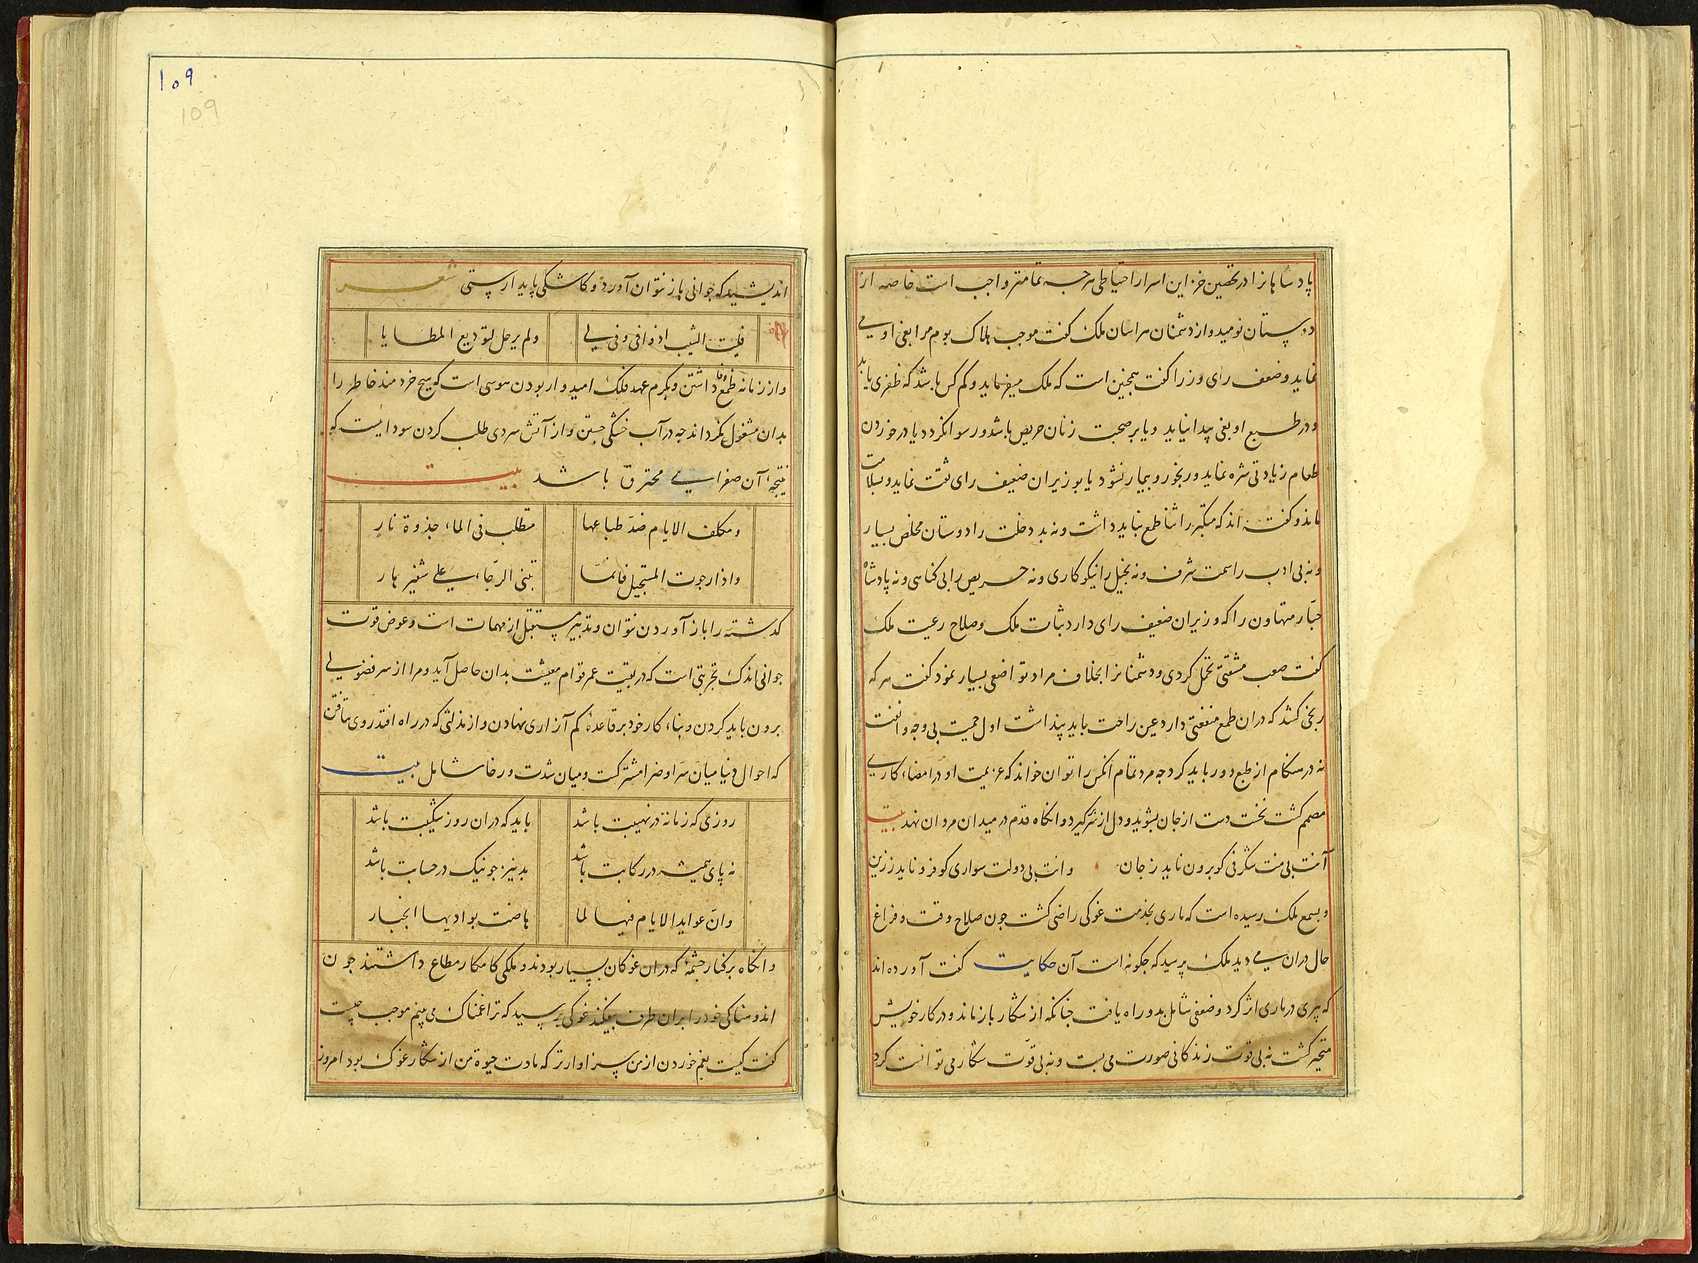 پادشاهانرا در تحصین خزاین اسرار احتیاطی هرچه تمامتر واجب است خاصه از
دوستان نومید و از دشمنان هراسان ملک گفت موجب هلاک بوم مرا بغی او می
نماید و ضعف رای وزرا گفت همچنین است که ملک میفرماید و کم کس باشد که ظفری یابد
و در طبع او بغی پیدا نیاید و یا بر صحبت زنان حریص باشد و رسوا نکردد یا در خوردن
طعام زیادتی شره نماید و رنجور و بیمار نشود یا بوزیران ضعیف رای ثقت نماید و بسلامت
ماند و گفته اند که متکبر را ثنا طمع نباید داشت و نه بد دخلت را دوستان مخلص بسیار
و نه بی ادب را سمت شرف و نه بخیل را نیکوکاری و نه حریص را بی کناهی و نه پادشاه
جبار متهاون را که وزیران ضعیف رای دارد ثبات ملک و صلاح رعیت ملک
گفت صعب مشقتی تحمل کردی و دشمنانرا بخلاف مراد تواضعی بسیار نمود گفت هر که
رنجی کشد که در ان طمع منفعتی دارد عین راحت باید پنداشت اول حمیت بی وجه و انفت
نه در هنکام از طبع دور باید کرد چه مرد تمام انکس را توان خواند که عزیمت او در امضاء کاری
مصمم گشت نخست دست از جان بشوید و دل از سر برکیرد و انکاه قدم در میدان مردان نهد بیت
آنت بی همت شگرفی کو برون ناید ز جان وانت بی دولت سواری کو فرو ناید ز زین
و بسمع ملک رسیده است که ماری بخدمت غوکی راضی گشت چون صلاح وقت و فراغ
حال دران می دید ملک پرسید که چگونه است آن حکایت گفت آورده اند
که پیری در ماری اثر کرد و ضعفی شامل بدو راه یافت چنانکه از شکار باز ماند و در کار خویش
متحیر گشت نه بی قوت زندکانی صورت می بست و نه بی قوّت شکار می توانست کرد
۱۰۹
109
اندیشید که جوانی باز نتوان آورد و کاشکی پایدارستی شعر
فلیت الشیب اذ وافی وفی لی
ولم یرحل لتودیع المطایا
و از زمانه طمع وفا داشتن و بکرم عهد فلک امیدوار بودن هوسی است که هیچ خردمند خاطر را
بدان مشغول نکرداند چه در آب خشکی جستن و از آتش سردی طلب کردن سودایست که
نتیجهٔ آن صفرایی محترق باشد بیت
ومکلف الایام ضدّ طباعها
متطلب فی الماء جذوة نار
واذا رجوت المستحیل فانما
تبنی الرجاء علی شفیر هار
گذشته را باز آوردن نتوان و تدبیر مستقبل از مهمات است و عوض قوت
جوانی اندک تجربتی است که در بقیت عمر قوام معیشت بدان حاصل آید و مرا از سر فضولی
برون باید کردن و بناء کار خود بر قاعدهٔ کم آزاری نهادن و از مذلتی که در راه افتد روی نتافتن
که احوال دنیا میان سرّا و ضرا مشترکست و میان شدت و رخا شامل بیت
روزی که زمانه در نهیبت باشد
باید که دران روز شکیبت باشد
نه پای همیشه در رکابت باشد
بد نیز چو نیک در حسابت باشد
وانّ عواید الایام فیها لما
هاضت بوادیها انجبار
و انکاه بر کنار چشمهٔ که دران غوکان بسیار بودند و ملکی کامکار مطاع داشتند چون
اندوهناکی خود را بران طرف بیفکند غوکی پرسید که ترا غمناک می بینم موجب چیست
گفت کیست بغم خوردن از من سزاوارتر که مادت حیوة من از شکار غوک بود امروز